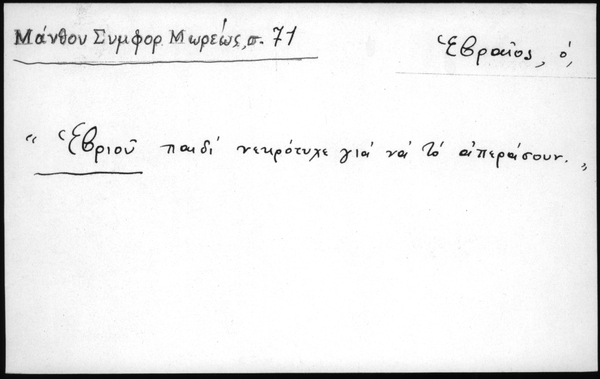 Μάνθου Συμφορ. Μωρέως, σ. 71
Ἑβραῖος, ὁ,
" Ἑβριοῦ παιδί νεκρότυχε γιά νά τό ἀπεράσουν. "